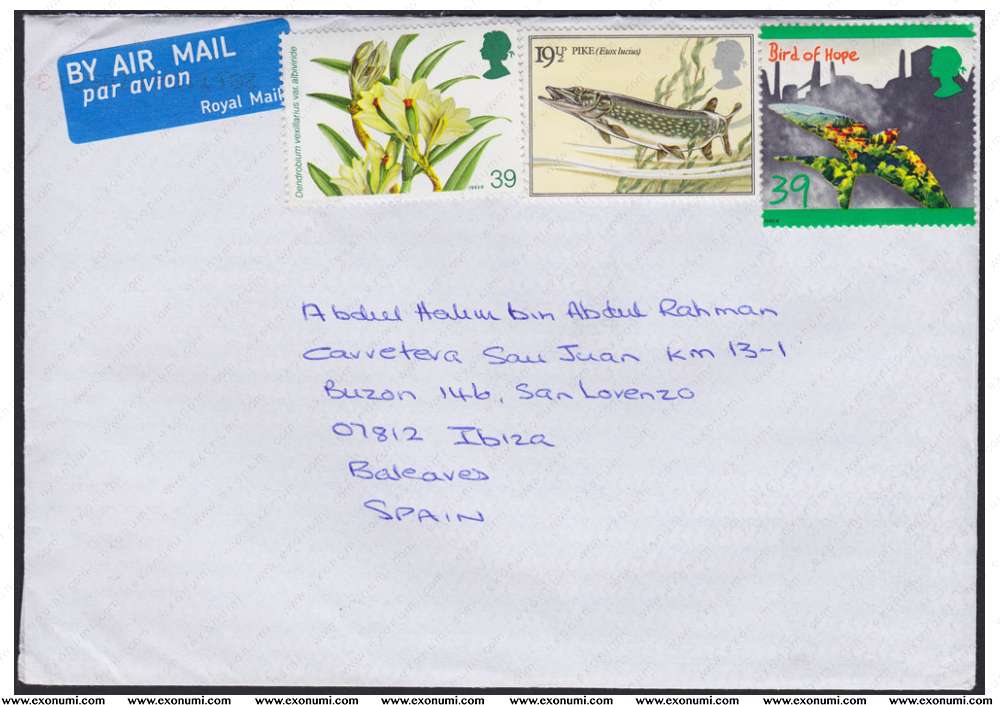 BY AIR MAIL
par avion
Royal Mail
Dendrobium vexillarius var. albiviride
39
19½P PIKE (Esox lucius)
Bird of Hope
39
Abdul Halim bin Abdul Rahman
Carretera San Juan Km 13-1
Buzon 146, San Lorenzo
07812 Ibiza
Baleares
SPAIN
www.exonumi.com www.exonumi.com www.exonumi.com www.exonumi.com www.exonumi.com www.exonumi.com www.exonumi.com www.exonumi.com